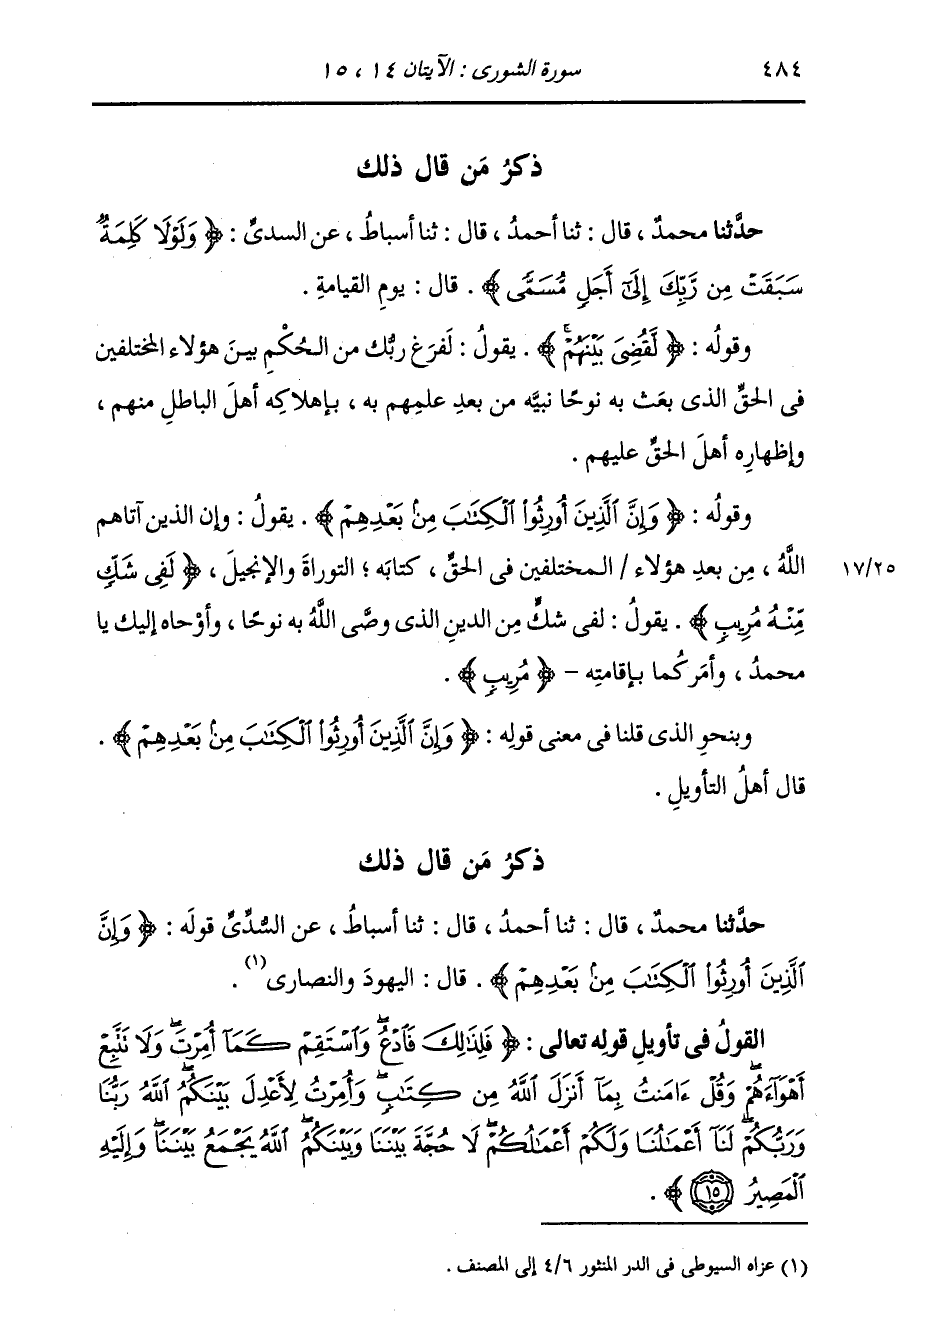 ٤٨٤ سورة الشورى : الآيتان ١٤ ، ١٥
ذكرُ مَن قال ذلك
حدَّثنا محمدٌ ، قال : ثنا أحمدُ ، قال : ثنا أسباطُ ، عن السدىِّ : ﴿ وَلَوْلَا كَلِمَةٌ
سَبَقَتْ مِن رَّبِّكَ إِلَىٰٓ أَجَلٍ مُّسَمًّى ﴾ . قال : يومِ القيامةِ .
وقولُه : ﴿ لَّقُضِىَ بَيْنَهُمْۚ ﴾ . يقولُ : لَفرَغ ربُّك من الحُكْمِ بينَ هؤلاء المختلفين
فى الحقِّ الذى بعَث به نوحًا نبيَّه من بعدِ علمِهم به ، بإهلاكِه أهلَ الباطلِ منهم ،
وإظهارِه أهلَ الحقِّ عليهم .
وقولُه : ﴿ وَإِنَّ ٱلَّذِينَ أُورِثُوا۟ ٱلْكِتَٰبَ مِنۢ بَعْدِهِمْ ﴾ . يقولُ : وإن الذين آتاهم
اللَّهُ ، مِن بعدِ هؤلاء / المختلفين فى الحقِّ ، كتابَه ؛ التوراةَ والإنجيلَ ، ﴿ لَفِى شَكٍّ ١٧/٢٥
مِّنْهُ مُرِيبٍ ﴾ . يقولُ : لفى شكٍّ مِن الدينِ الذى وصَّى اللَّهُ به نوحًا ، وأوْحاه إليك يا
محمدُ ، وأمَركُما بإقامتِه – ﴿ مُرِيبٍ ﴾ .
وبنحوِ الذى قلنا فى معنى قولِه : ﴿ وَإِنَّ ٱلَّذِينَ أُورِثُوا۟ ٱلْكِتَٰبَ مِنۢ بَعْدِهِمْ ﴾ .
قال أهلُ التأويلِ .
ذكرُ مَن قال ذلك
حدَّثنا محمدٌ ، قال : ثنا أحمدُ ، قال : ثنا أسباطُ ، عن السُّدِّىِّ قولَه : ﴿ وَإِنَّ
ٱلَّذِينَ أُورِثُوا۟ ٱلْكِتَٰبَ مِنۢ بَعْدِهِمْ ﴾ . قال : اليهودَ والنصارى(١) .
القولُ فى تأويلِ قولِه تعالى : ﴿ فَلِذَٰلِكَ فَٱدْعُۖ وَٱسْتَقِمْ كَمَآ أُمِرْتَۖ وَلَا تَتَّبِعْ
أَهْوَآءَهُمْۖ وَقُلْ ءَامَنتُ بِمَآ أَنزَلَ ٱللَّهُ مِن كِتَٰبٍۖ وَأُمِرْتُ لِأَعْدِلَ بَيْنَكُمُۖ ٱللَّهُ رَبُّنَا
وَرَبُّكُمْۖ لَنَآ أَعْمَٰلُنَا وَلَكُمْ أَعْمَٰلُكُمْۖ لَا حُجَّةَ بَيْنَنَا وَبَيْنَكُمُۖ ٱللَّهُ يَجْمَعُ بَيْنَنَاۖ وَإِلَيْهِ
ٱلْمَصِيرُ ١٥ ﴾ .
(١) عزاه السيوطى فى الدر المنثور ٤/٦ إلى المصنف .